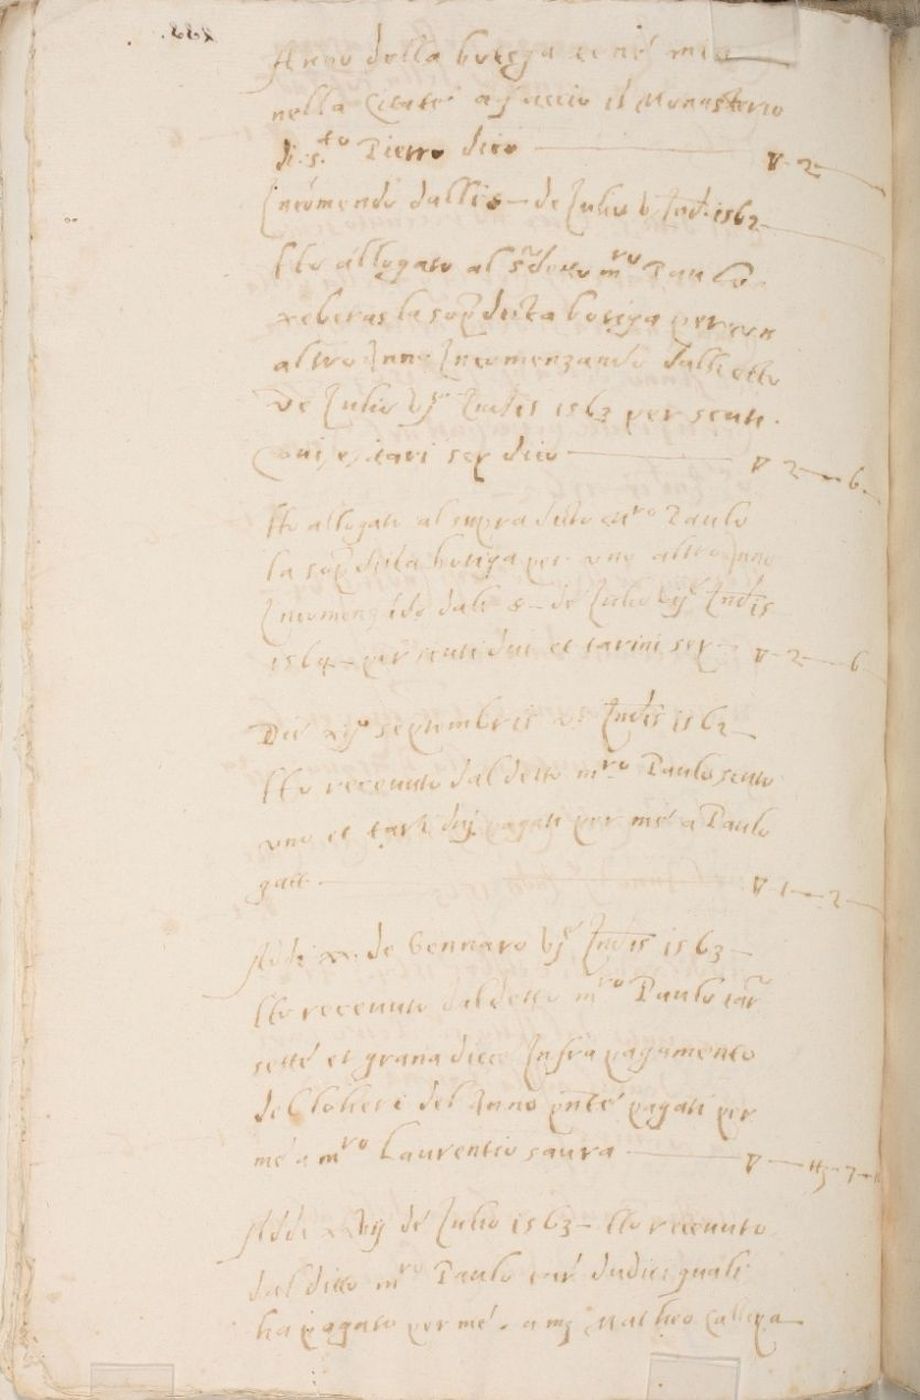 Anno della botega ... mia
nella Citate a faccio il Monasterio
di S.to Pietro dico — 2
Incomendo dalli 8 – de Julio v Ind. 1562
Ho allogato al s.detto m.ro Paulo
xeberas la sop.dicta botiga per un
altro Anno Incomenzando dalli otto
de Julio vj Indis 1563 per scuti
... tari sex dico — 2 — 6
Ho allogato al supra dicto m.ro Paulo
la sop.dicta botiga per uno altro Anno
dali 8 – de Julio vij Indis
1564 – per scuti dui et tarini sex – 2 — 6
Die xij septembris Indis 1562
Ho recevuto dal detto m.ro Paulo scuto
uno et tari duj pagati per me a Paulo
gatt — 1 — 2
Adi xx de Gennaro vj Indis 1563 –
Ho recevuto dal detto m.ro Paulo tar
sette et grana diece Infra pagamento
del lohere del Anno pnte pagati per
me a m.ro Laurentio saura — 7
Addi de Julio 1563 – Ho recevuto
dal ditto m.ro Paulo tar dudici quali
ha pagato per me a Matheo